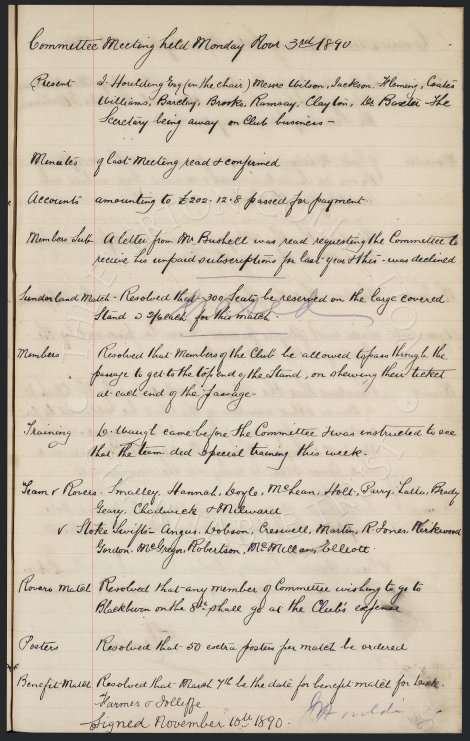 Committee Meeting held Monday Novr 3rd 1890
Present J. Houlding Esq (in the chair) Messrs Wilson, Jackson, Fleming, Coates
Williams, Barclay, Brooks, Ramsay, Clayton, Dr Baxter - The
Secretary being away on Club business -
Minutes of last Meeting read & confirmed
Accounts amounting to £202.12.8 passed for payment
Members Sub. A letter from Mr Bushell was read requesting the Committee to
receive his unpaid subscriptions for last year & this - was declined
Sunderland Match - Resolved that 300 Seats be reserved on the large covered
Stand @ 2/6 each for this match.
Members Resolved that Members of the Club be allowed to pass through the
passage to get to the top end of the Stand, on shewing their ticket
at each end of the passage -
Training D. Waugh came before the Committee & was instructed to see
that the team did special training this week.
Team v Rovers, Smalley, Hannah, Doyle, McLean, Holt, Parry, Latta, Brady
Geary, Chadwick & Milward
v Stoke Swifts - Angus, Dobson, Creswell, Martin, R. Jones, Kirkwood
Gordon, McGregor, Robertson, McMillan, Elliott.
Rovers Match Resolved that any member of Committee wishing to go to
Blackburn on the 8th shall go at the Club's expense
Posters Resolved that 50 extra posters per match be ordered
Benefit Match Resolved that March 7th be the date for benefit match for
Farmer & Jolliffe
Signed November 10th 1890 -